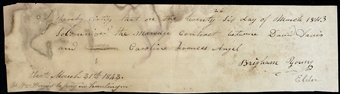 I hereby certify that on the twenty six day of March 1843
I solemnized the Marriage Contract between David Davis
and Caroline Frances Angel
Brigham Young
Elder
March 31st 1843